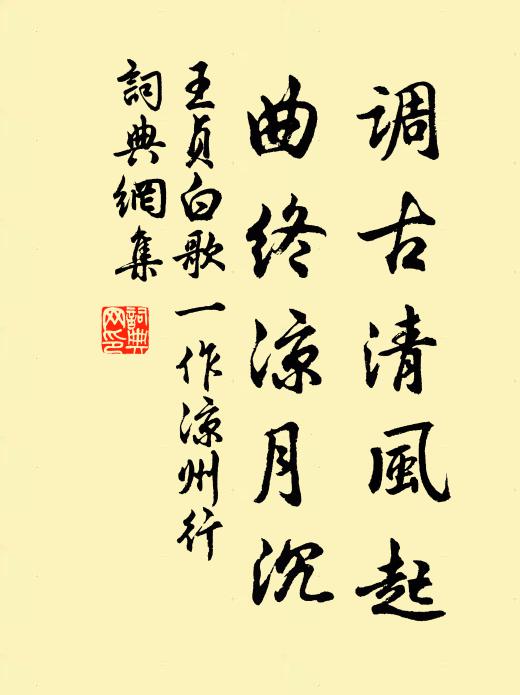 调古清風起
曲终凉月沉
王贞白歌一作凉州行
詞典網集
詞典网印